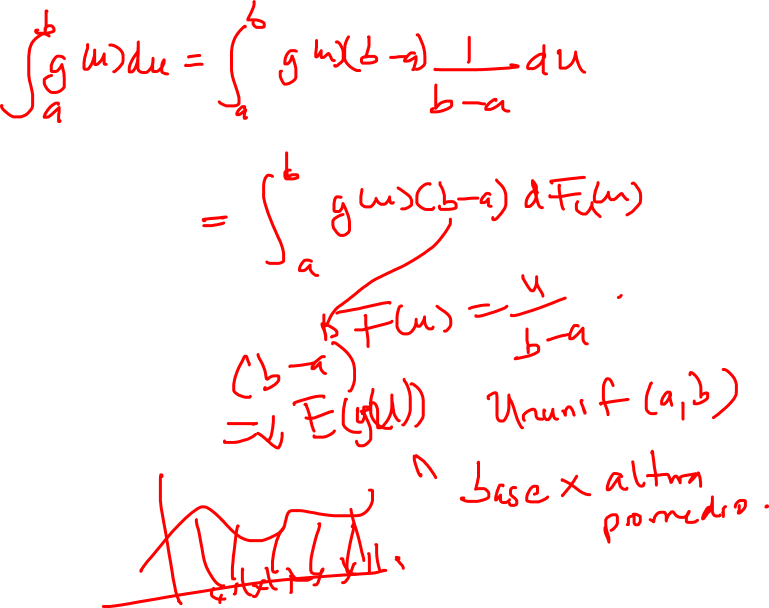 ∫_a^b g(u)du = ∫_a^b g(u)(b-a) 1/(b-a) du
= ∫_a^b g(u)(b-a) dF_U(u)
F(u) = u/(b-a).
(b-a)
= E(g(U)) U~unif(a,b)
base × altura
promedio.